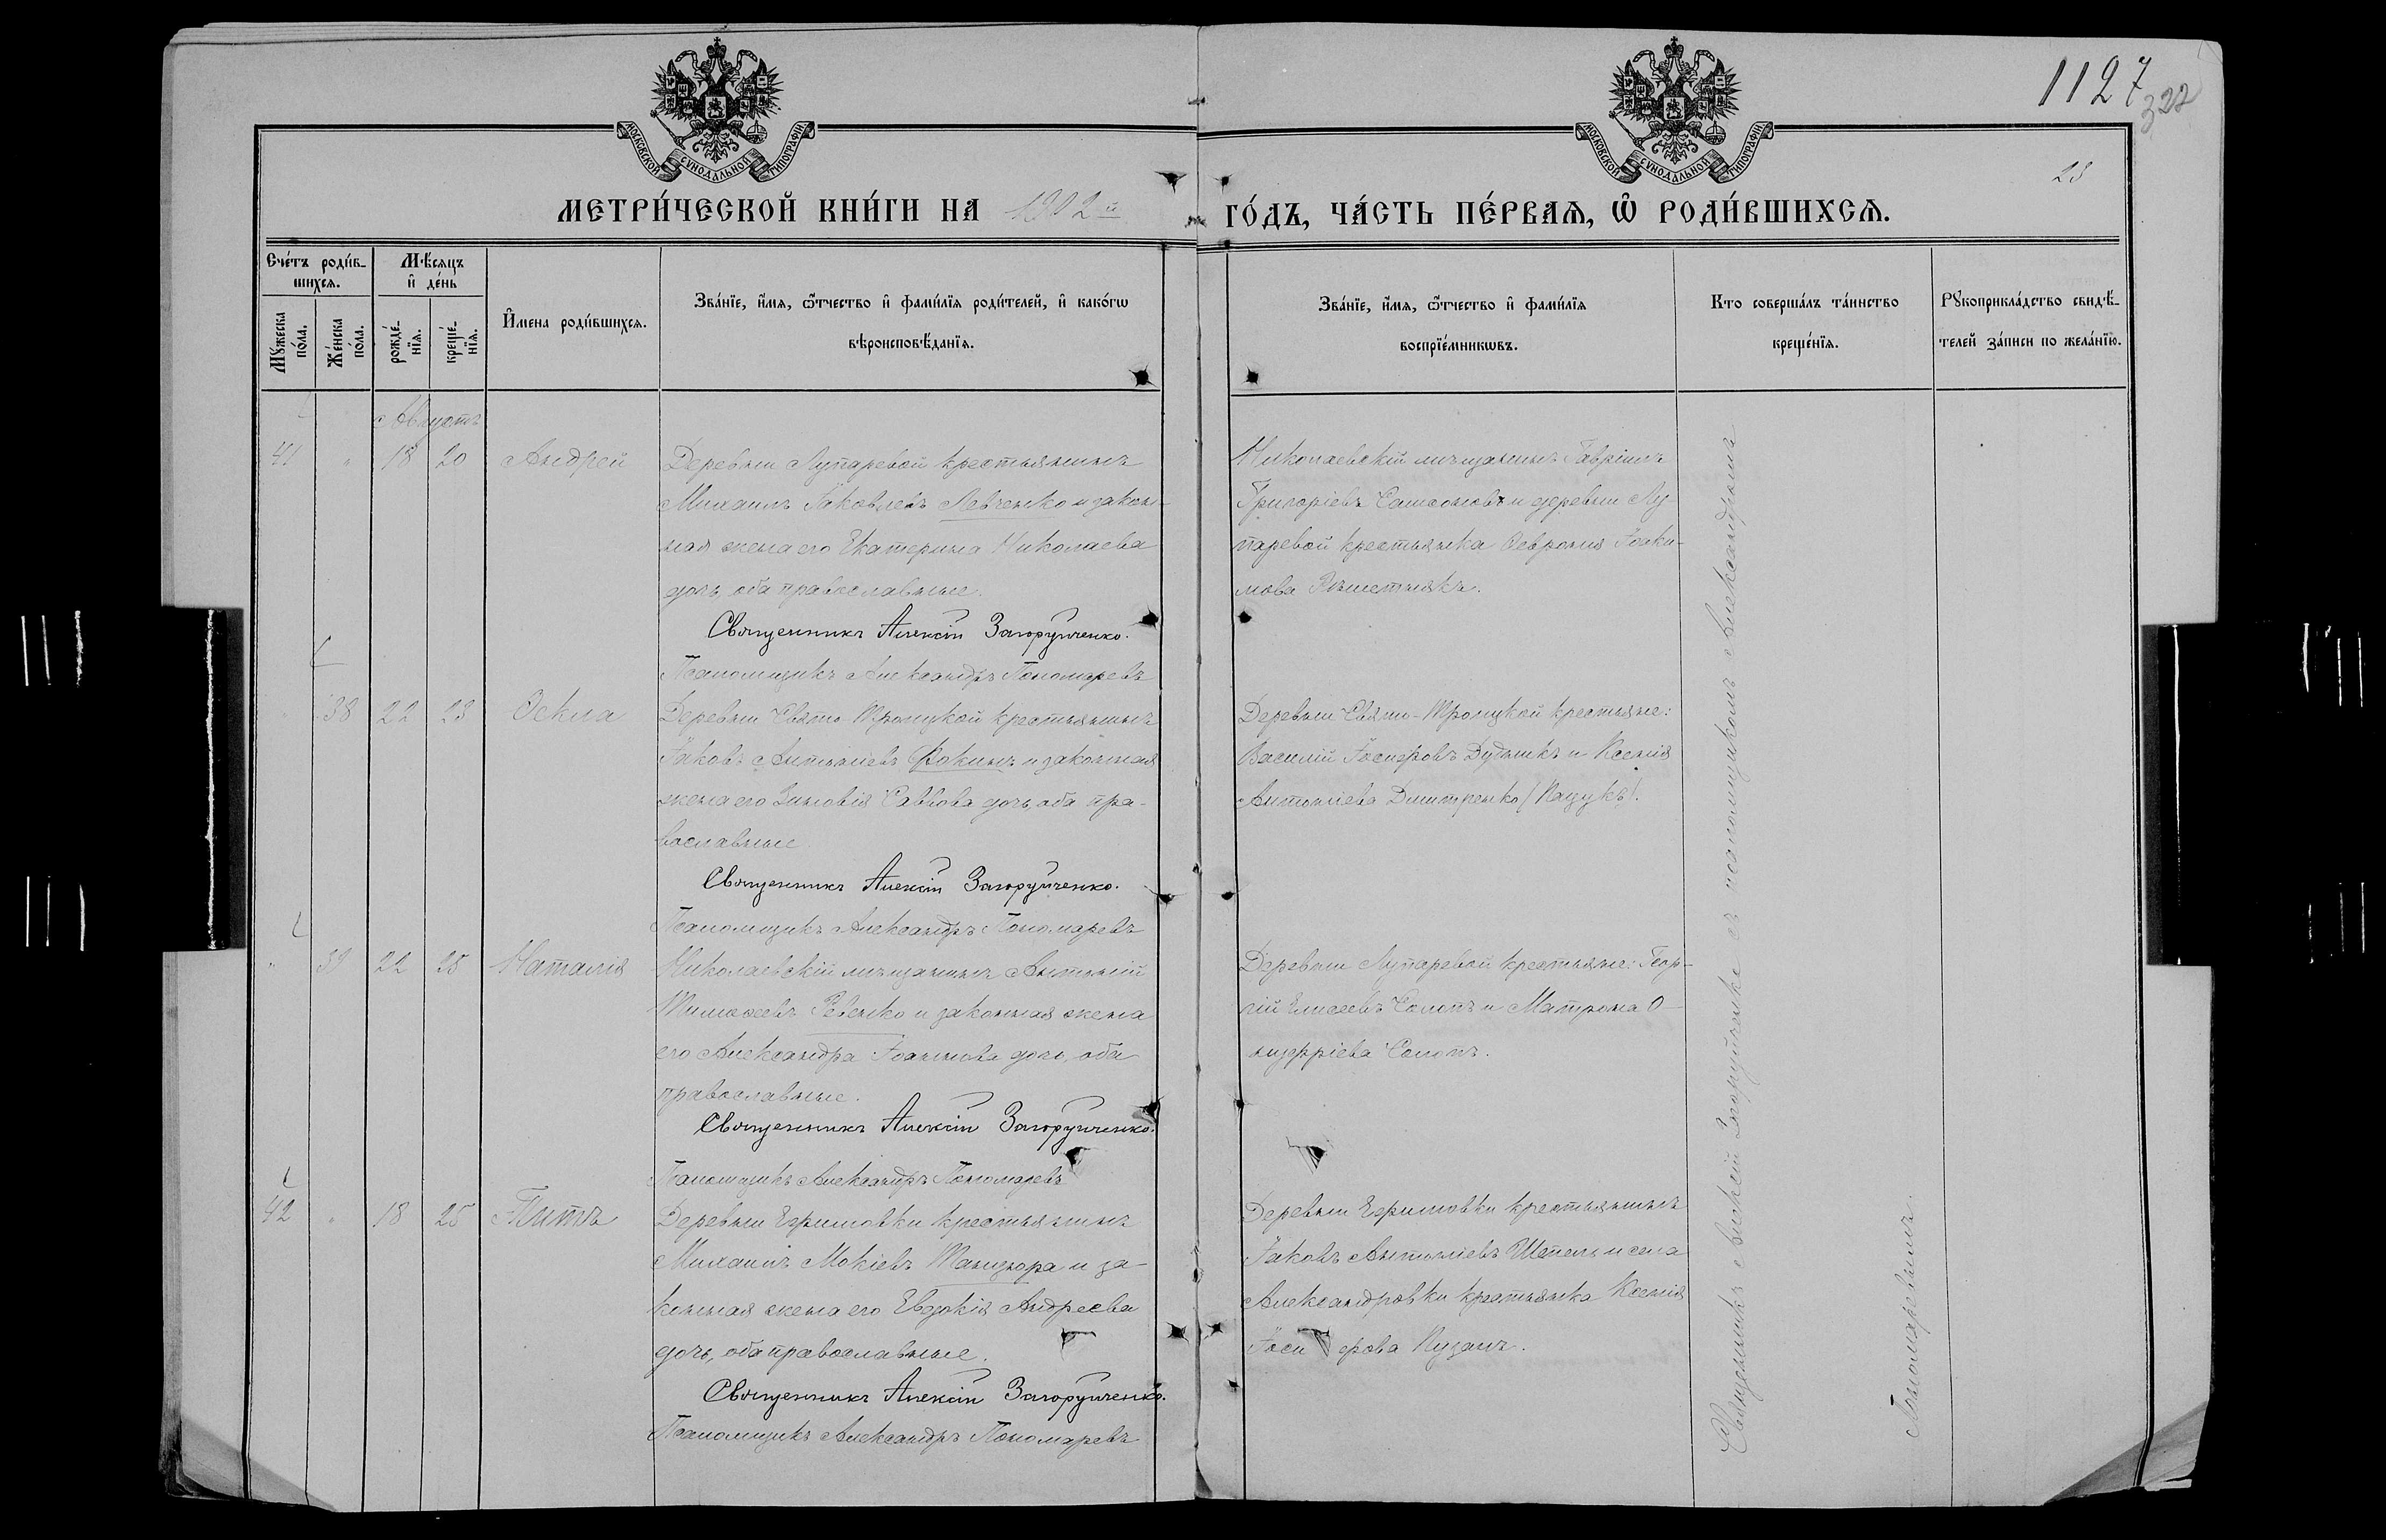 1127
322
23
МОСКОВСКОЙ СѴНОДАЛЬНОЙ ТИПОГРАФІИ
МОСКОВСКОЙ СѴНОДАЛЬНОЙ ТИПОГРАФІИ
МЕТРИ́ЧЕСКОЙ КНИ́ГИ НА 1902й ГО́ДЪ, ЧА́СТЬ ПЕ́РВАѦ, Ѿ РОДИ́ВШИХСѦ.
Сче́тъ роди́вшихсѧ.
Мꙋ́жеска по́ла.
Же́нска по́ла.
Мѣ́сяцъ и҆ де́нь
рожде́нїѧ.
креще́нїѧ.
И҆мена роди́вшихсѧ.
Зва́нїе, и҆́мѧ, ѻ҆́тчество и҆ фами́лїѧ роди́телей, и҆ како́гѡ
вѣроисповѣ́данїѧ.
Зва́нїе, и҆́мѧ, ѻ҆́тчество и҆ фами́лїѧ
воспрїе́мникѡвъ.
Кто соверша́лъ та́инство
креще́нїѧ.
Рꙋкоприкла́дство свидѣ́-
телей за́писи по жела́нїю.
Августъ
41 " 18 20 Андрей
Деревни Лупаревой крестьянинъ
Михаилъ Іаковлевъ Левченко и закон-
ная жена его Екатерина Николаева
дочь, оба православные.
Священникъ Алексій Загоруйченко.
Псаломщикъ Александръ Пономаревъ
Николаевскій мѣщанинъ Гавріилъ
Григоріевъ Самсоновъ и деревни Лу-
паревой крестьянка Ѳевронія Іоаки-
мова Рѣшетнякъ.
" 38 22 23 Ѳекла
Деревни Свято-Троицкой крестьянинъ
Іаковъ Антоніевъ Фокинъ и законная
жена его Зиновія Саввова дочь, оба пра-
вославные
Священникъ Алексій Загоруйченко.
Псаломщикъ Александръ Пономаревъ
Деревни Свято-Троицкой крестьяне:
Василій Іосифовъ Дудникъ и Ксенія
Антоніева Дмитренко /Пацукъ/.
" 39 22 25 Наталія
Николаевскій мѣщанинъ Антоній
Тимоѳеевъ Ревенко и законная жена
его Александра Іоаннова дочь, оба
православные.
Священникъ Алексій Загоруйченко.
Псаломщикъ Александръ Пономаревъ
Деревни Лупаревой крестьяне: Геор-
гій Елисеевъ Солопъ и Матрона О-
нуфріева Солопъ.
42 " 18 25 Титъ
Деревни Ефимовки крестьянинъ
Михаилъ Мокіевъ Танцюра и за-
конная жена его Евдокія Андреева
дочь, оба православные.
Священникъ Алексій Загоруйченко.
Псаломщикъ Александръ Пономаревъ
Деревни Ефимовки крестьянинъ
Іаковъ Антоніевъ Шепель и села
Александровки крестьянка Ксенія
Іосифова Пузанъ.
Священникъ Алексій Загоруйченко съ псаломщикомъ Александромъ
Пономаревымъ.